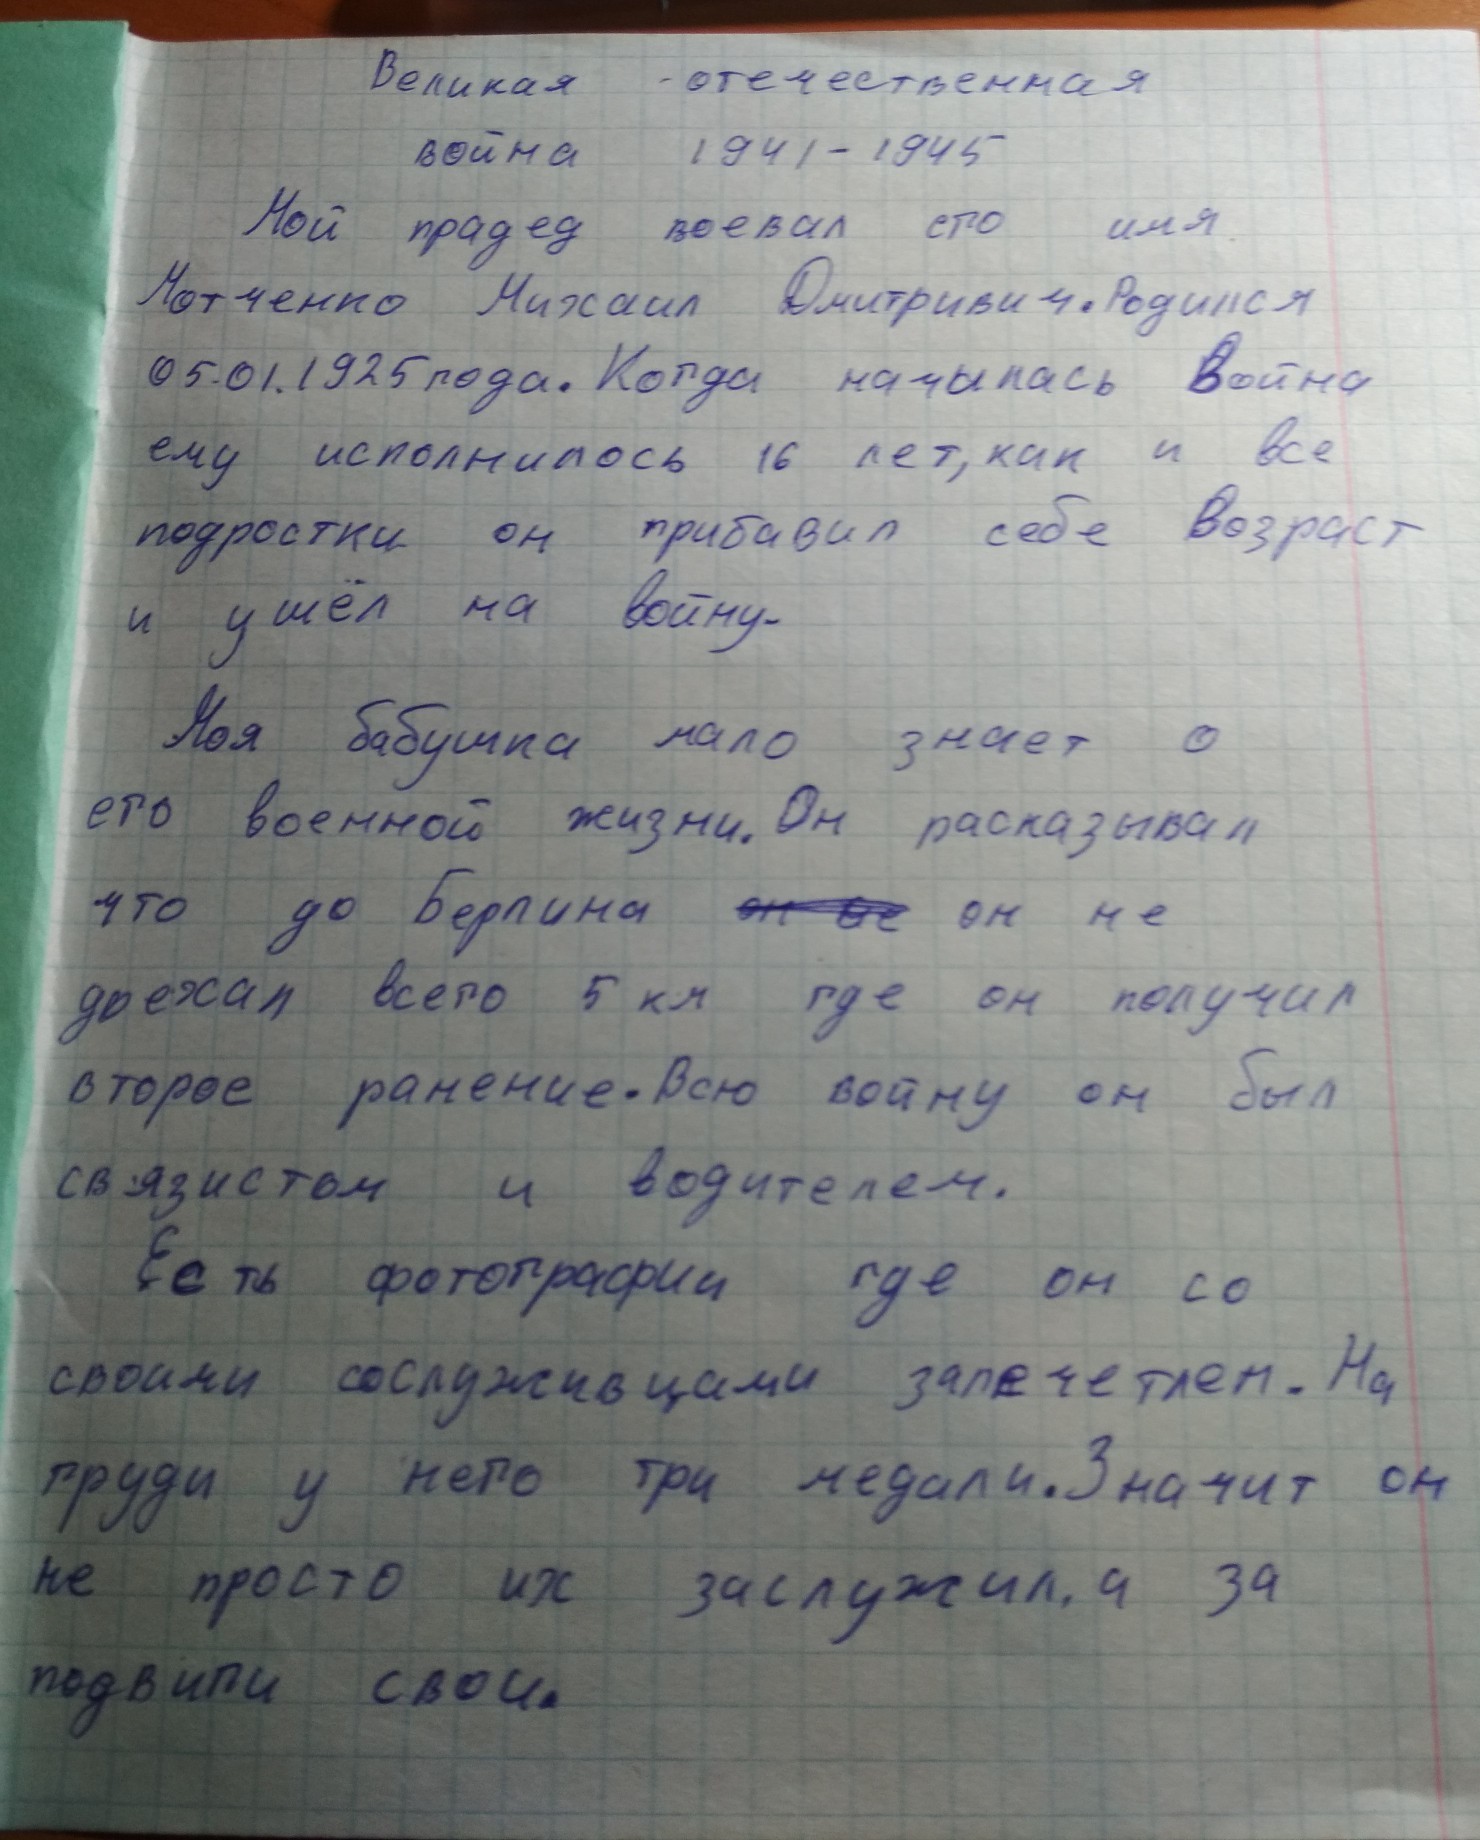 Великая - отечественная
война 1941-1945
Мой прадед воевал его имя
Мотченко Михаил Дмитривич. Родился
05.01.1925 года. Когда начылась Война
ему исполнилось 16 лет, как и все
подростки он прибавил себе Возраст
и ушёл на войну.
Моя бабушка мало знает о
его военной жизни. Он расказывал
что до Берлина он не
доехал всего 5 км где он получил
второе ранение. Всю войну он был
связистом и водителем.
Есть фотографии где он со
своими сослуживцами запечетлен. На
груди у него три медали. Значит он
не просто их заслужил, а за
подвиги свои.